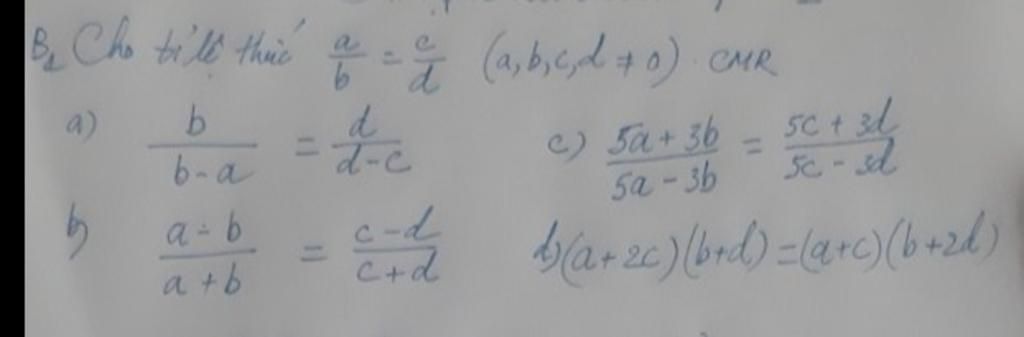 B1 Cho tỉ lệ thức a/b = c/d (a,b,c,d ≠ 0). CMR
a) b/(b-a) = d/(d-c)
c) (5a+3b)/(5a-3b) = (5c+3d)/(5c-3d)
b) (a-b)/(a+b) = (c-d)/(c+d)
d) (a+2c)(b+d) = (a+c)(b+2d)